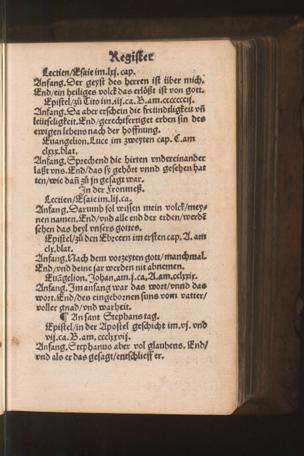 Register
Lectien/Esaie im.lxj. cap.
Anfang. Der geyst des herren ist über mich.
End/ein heiliges volck das erlößt ist von gott.
Epistel/zů Tito im.iij.ca. B.am.ccccccij.
Anfang. Da aber erschein die freündtligkeit vñ
leütseligkeit. End/gerechtfertiget erben sin des
ewigen lebens nach der hoffnung.
Euangelion. Luce im zweyten cap. C.am
clxx.blat.
Anfang. Sprechend die hirten vndereinander
laßt vns. End/das sy gehört vnnd gesehen hat
ten/wie dañ zů jn gesagt war.
In der Fronmeß.
Lectien/Esaie im.lij.ca.
Anfang. Darumb sol wissen mein volck/mey⸗
nen namen. End/vnd alle end der erden/werdē
sehen das heyl vnsers gottes.
Epistel/zů den Ebreern im ersten cap. A. am
clx.blat.
Anfang. Nach dem vorzeyten gott/manchmal.
End/vnd deine jar werden nit abnemen.
Euāgelion. Johan.am.j.ca. A.am.cclxix.
Anfang. Im anfang war das wort/vnnd das
wort. End/des eingebornen suns vom vatter/
voller gnad/vnd warheit.
¶ An sant Stephans tag.
Epistel/in der Apostel geschicht im.vj. vnd
vij.ca. B.am. ccclxvij.
Anfang. Stephanus aber vol glaubens. End/
vnd als er das gesagt/entschlieff er.